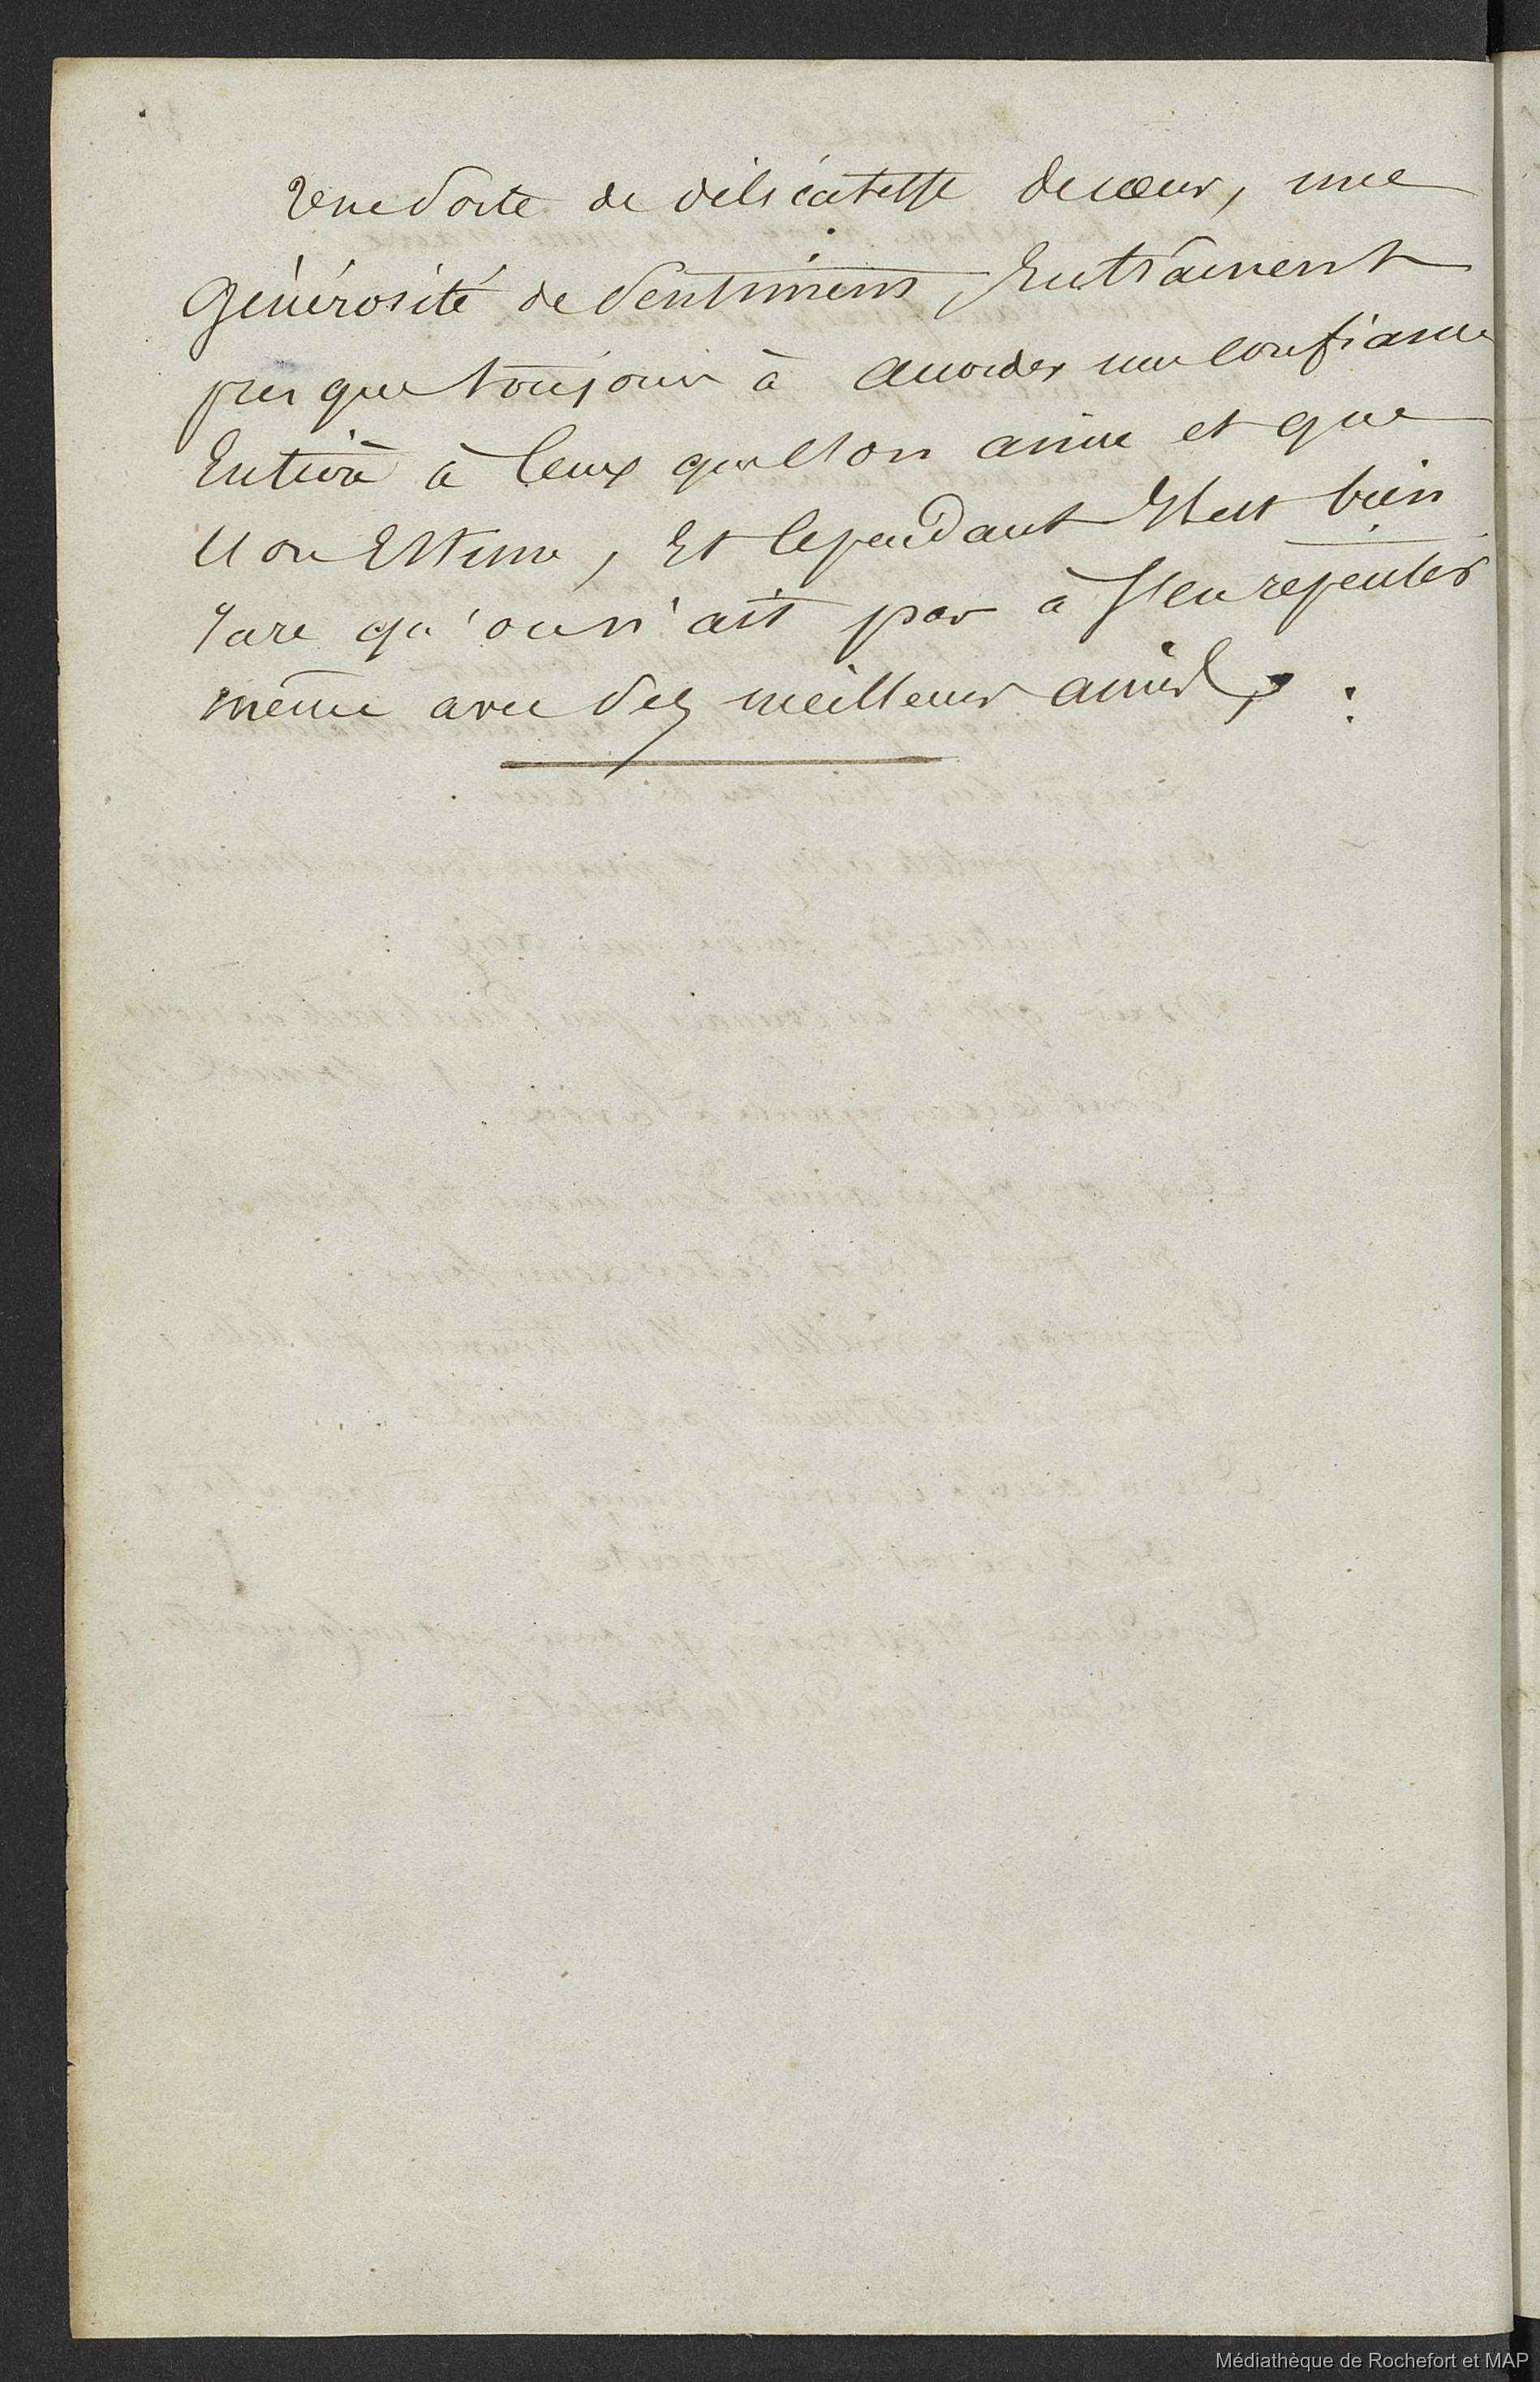 Une sorte de délicatesse de cœur, une
générosité de sentimens, Entrainent
presque toujours à accorder une confiance
Entière à Ceux que l'on aime et que
l'on Estime, Et Cependant Il est bien
rare qu'on n'ait pas à s'en repentir
même avec ses meilleurs amis.
Médiathèque de Rochefort et MAP